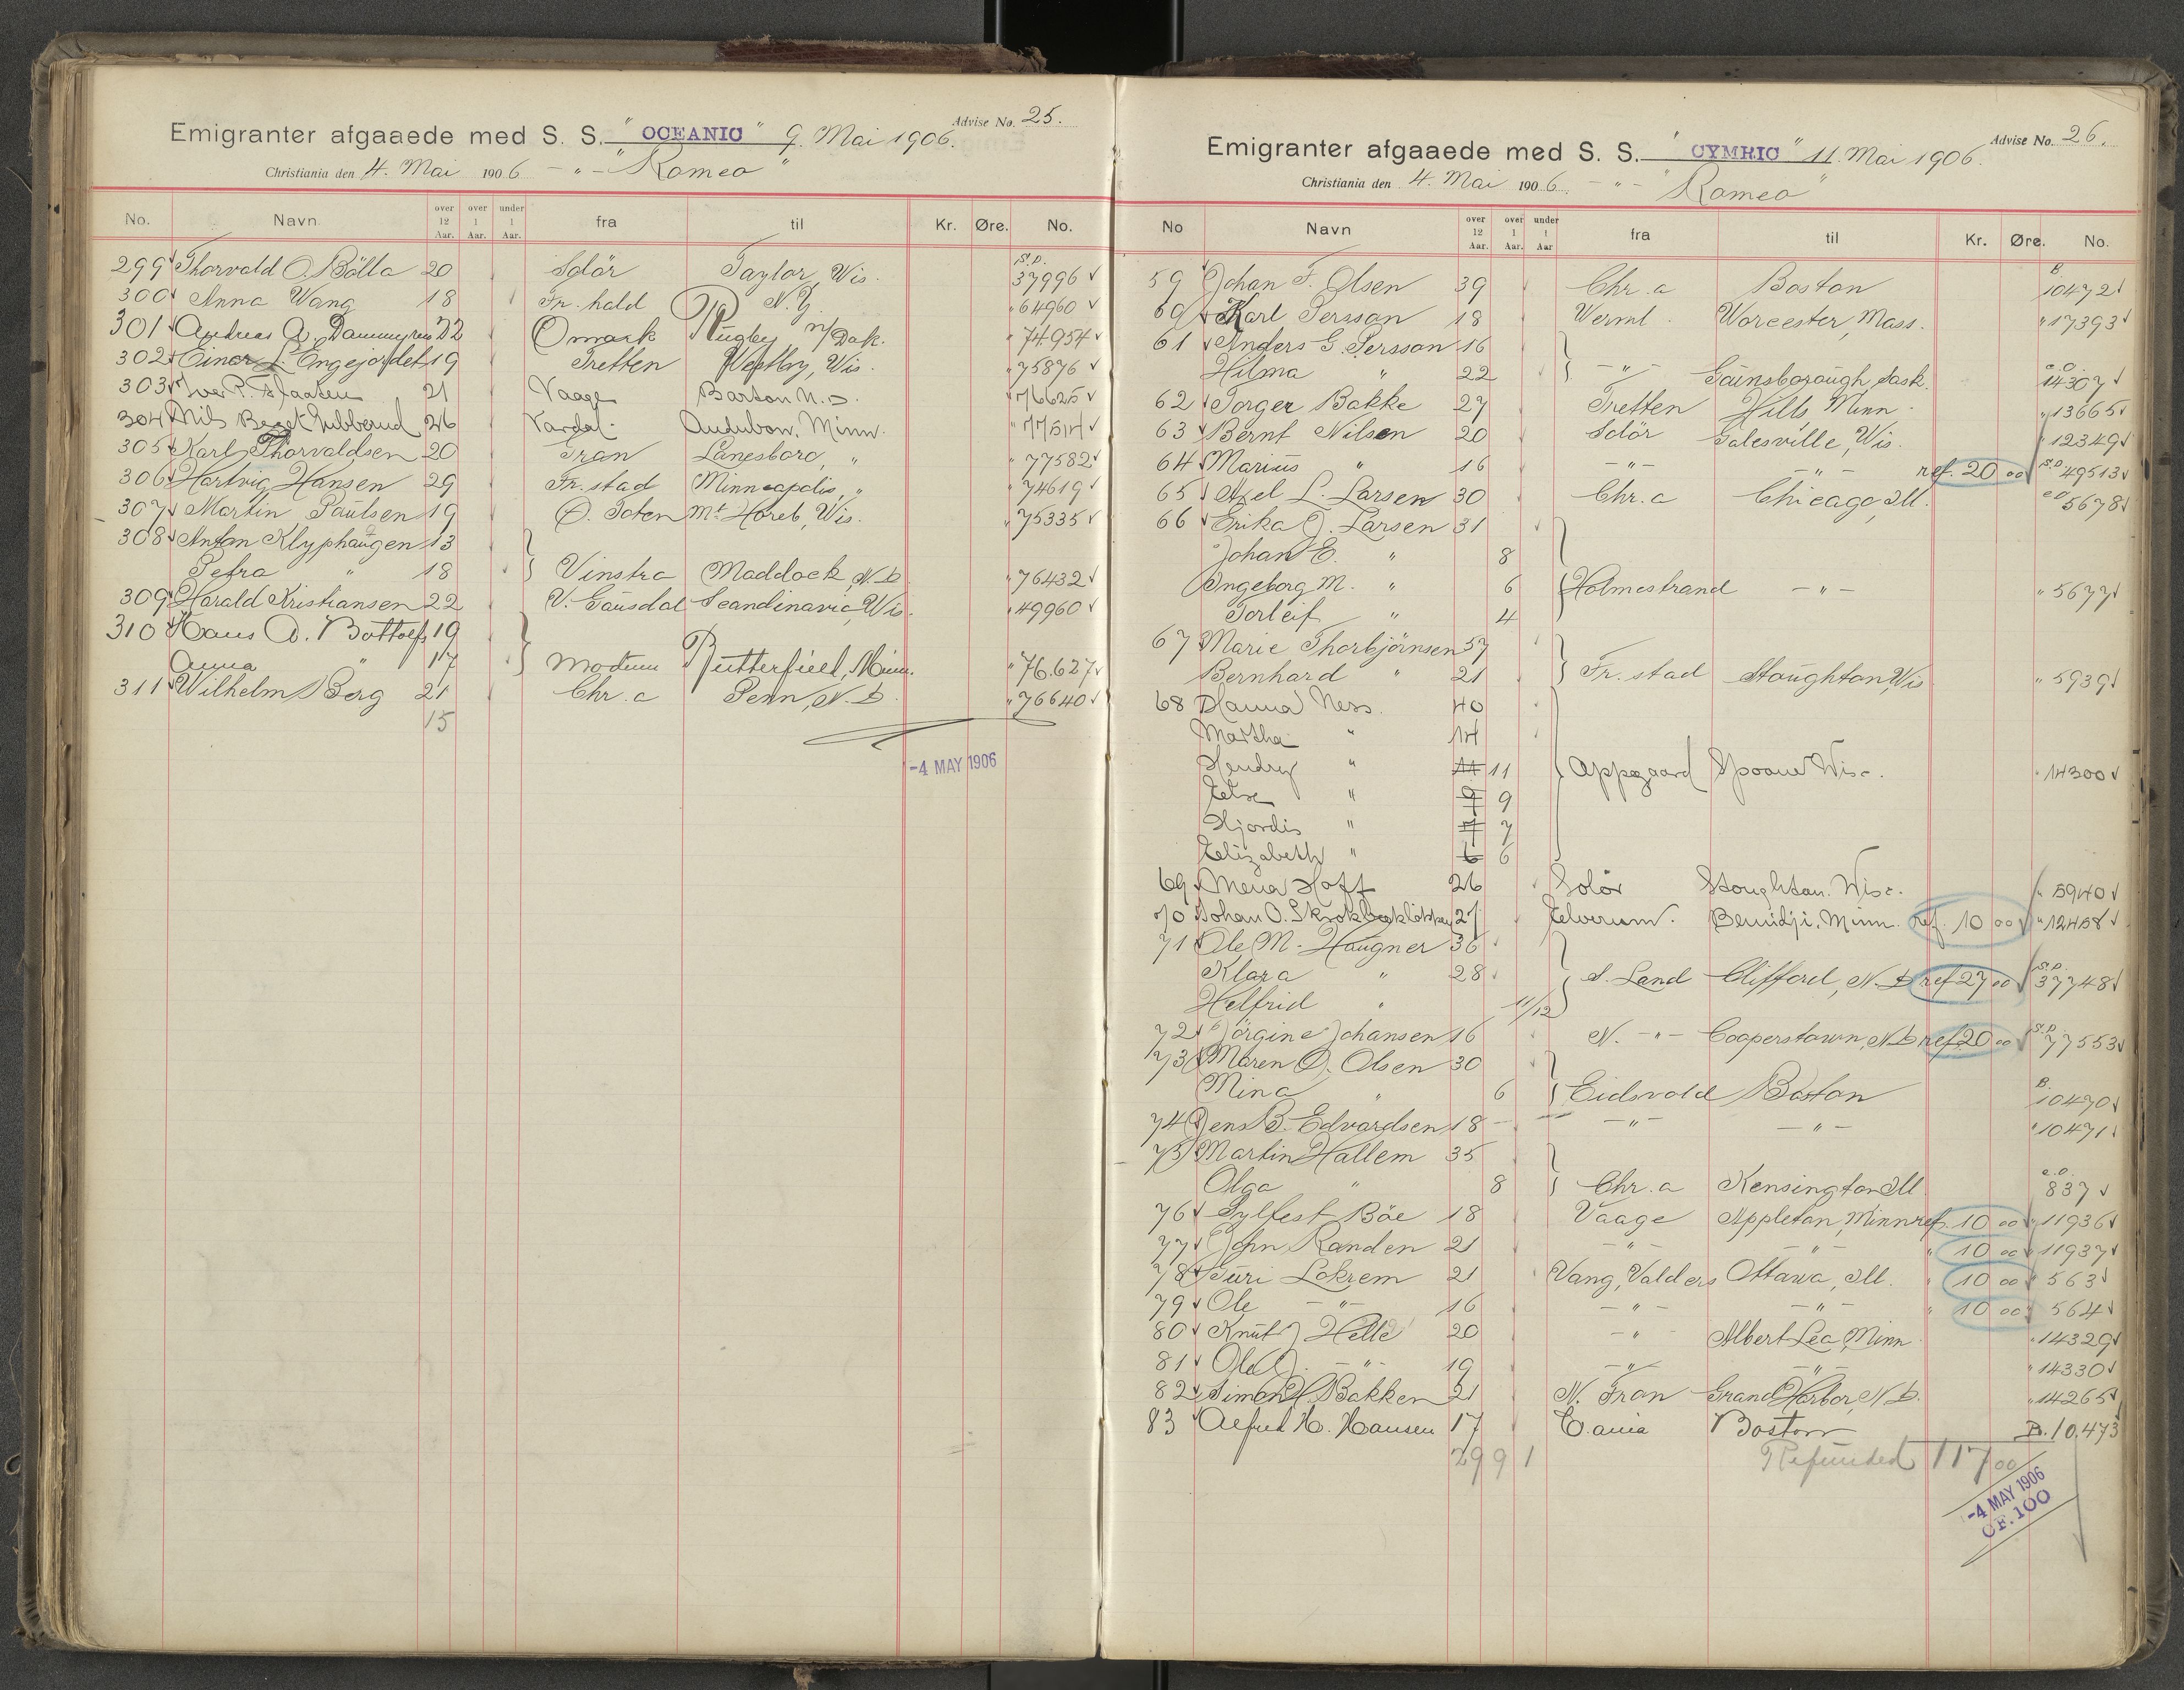 Advise No. 25.
Emigranter afgaaede med S. S. "OCEANIC" 9. Mai 1906.
Christiania den 4. Mai 1906 - " - "Romeo"
No. Navn. over 12 Aar. over 1 Aar. under 1 Aar. fra til Kr. Øre. No.
299 Thorvald O. Bölla 20 Solör Taylor, Wis. S.P. 37996
300 Anna Wang 18 Fr. hald N.Y. " 64960
301 Andreas A. 22 Omark Rugby N/Dak. " 74954
302 Einar L. Engejordet 19 Tretten Westby, Wis. " 75876
303 Iver P. Flaaten 21 Vaage Barton N.D. " 76625
304 Nils Lubberud 26 Vardal. Audubon, Minn. " 77514
305 Karl Thorvaldsen 20 Gran Lanesboro, " " 77582
306 Hartvig Hansen 29 Fr. stad Minneapolis, " " 74619
307 Martin Paulsen 19 Ö. Toten Mt Horeb, Wis. " 75335
308 Anton Klyphaugen 13
Petra " 18 Vinstra Maddock, N.D. " 76432
309 Harald Kristiansen 22 V. Gausdal Scandinavia, Wis. " 49960
310 Hans A. Bottolfs 19
Anna " 17 Modum Butterfield, Minn. " 76.627
311 Wilhelm Berg 21 Chr.a Penn, N.D. " 76640
15
-4 MAY 1906
Advise No. 26.
Emigranter afgaaede med S. S. "CYMRIC" 11. Mai 1906.
Christiania den 4. Mai 1906. - " - "Romeo"
No Navn over 12 Aar. over 1 Aar. under 1 Aar fra til Kr. Øre. No.
59 Johan F. Olsen 39 Chr.a Boston B. 10472
60 Karl Persson 18 Werml. Worcester, Mass. " 17393
61 Anders G. Persson 16
Hilma " 22 - " - Gainsborough, Sask. e.O. 14307
62 Torger Bakke 27 Tretten Hills Minn. " 13665
63 Bernt Nilsen 20 Solör Galesville, Wis. " 12349
64 Marius " 16 - " - - " - ref. 20 00 S.P. 49513
65 Axel L. Larsen 30 Chr.a Chicago, Ill. e.O. 5678
66 Erika J. Larsen 31
Johan E. " 8
Ingeborg M. " 6 Holmestrand - " - " 5677
Torleif " 4
67 Marie Thorbjörnsen 57
Bernhard " 21 Fr. stad Stoughton, Wis " 5939
68 Hanna Ness. 40
Martha " 14
Hendry " 11 11
Else " 9 9 Appegaard Spooner Wisc. " 14300
Hjordis " 7 7
Elizabeth " 6 6
69 Mena Hoff 26 Solör Stoughton. Wisc. " 5940
70 Johan O. 27 Elverum. Bemidji, Minn. ref. 10 00 " 12458
71 Ole M. Haugner 36
Klara " 28 S. Land Clifford, N.D. ref 27 00 S.P. 37748
Helfrid " 11/12
72 Jörgine Johansen 16 N. - " - Cooperstown, N.D. ref. 20 00 S.P. 77553
73 Maren O. Olsen 30
Mina " 6 Eidsvold Boston B. 10470
74 Jens B. Edvardsen 18 - " - - " - " 10471
75 Martin Hallem 35
Olga " 8 Chr.a Kensington Ill e.O. 837
76 Sylfest Böe 18 Vaage Appleton, Minn ref. 10 00 " 11936
77 John Randen 21 - " - - " - " 10 00 " 11937
78 Guri Lokrem 21 Vang, Valders Ottawa, Ill. " 10 00 " 563
79 Ole - " - 16 - " - - " - " 10 00 " 564
80 Knut J Helle 20 - " - Albert Lea, Minn " 14329
81 Ole J. - " - 19 - " - - " - " 14330
82 Simen H. Bakken 21 N. Fron Grand Harbor, N.D. " 14265
83 Alfred H. Hansen 17 C.ania Boston B. 10.473
29 9 1 Refunded 117 00
-4 MAY 1906
CF. 100